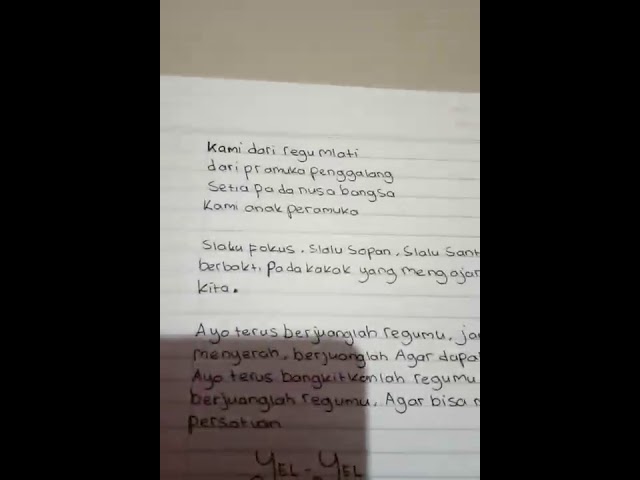 Kami dari regu mlati
dari pramuka penggalang
Setia pada nusa bangsa
Kami anak peramuka
Slalu Fokus, Slalu Sopan, Slalu Sant
berbakti pada kakak yang mengajar
Kita.
Ayo terus berjuanglah regumu, ja
menyerah, berjuanglah Agar dapa
Ayo terus bangkitkanlah regumu
berjuanglah regumu, Agar bisa
persatuan
YEL - YEL